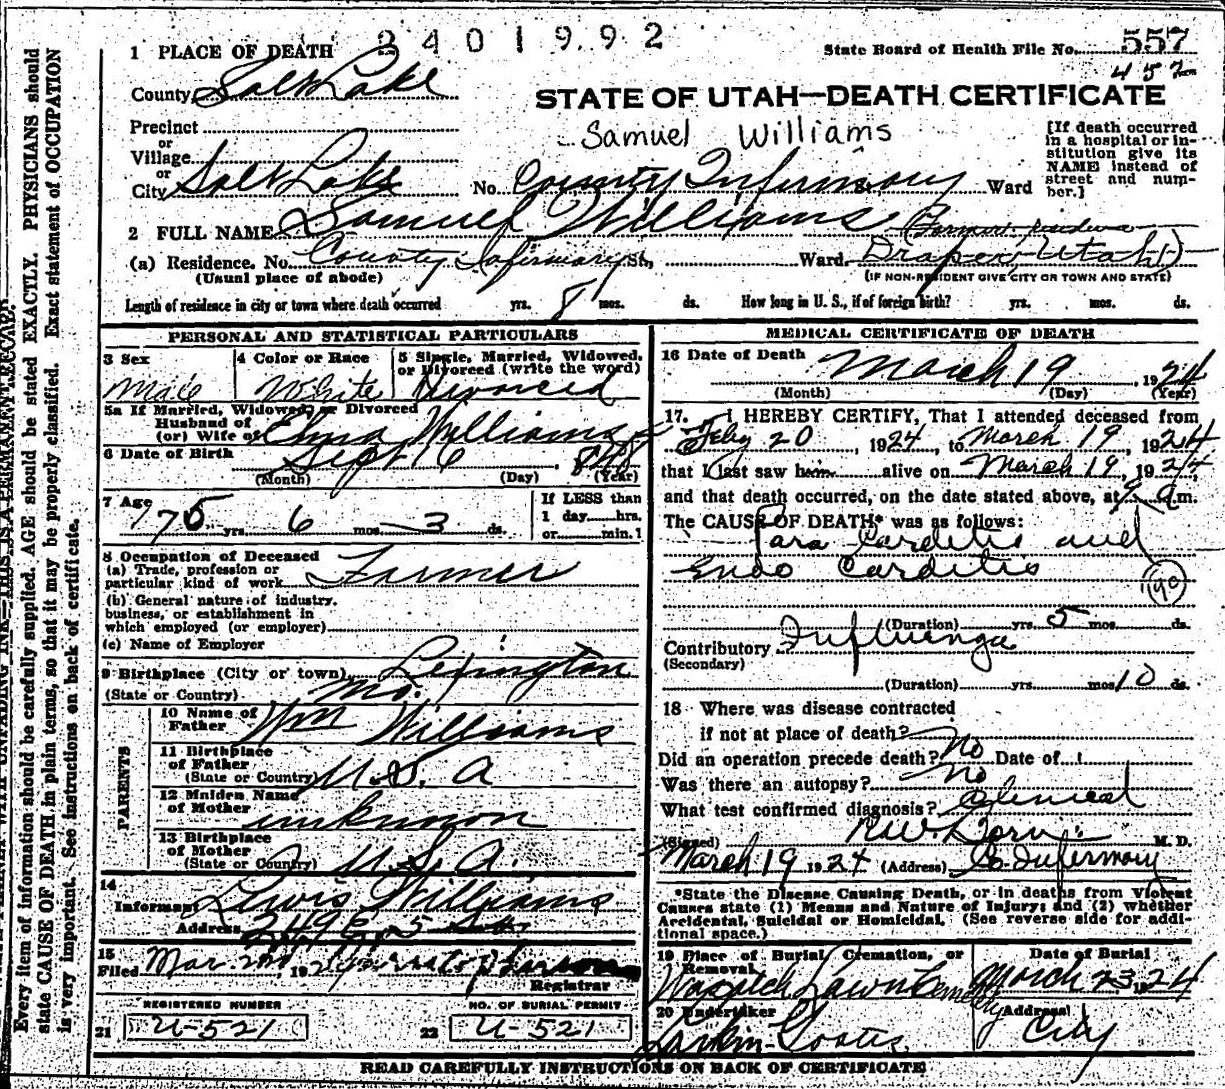 2401992
1 PLACE OF DEATH
State Board of Health File No. 557
452
County Salt Lake
STATE OF UTAH—DEATH CERTIFICATE
Precinct
Samuel Williams
or
Village
or
City Salt Lake No. County Infirmary Ward
[If death occurred in a hospital or institution give its NAME instead of street and number.]
2 FULL NAME Samuel Williams (Former residence
(a) Residence. No. County Infirmary St., Ward. Draper Utah)
(Usual place of abode)
(IF NON-RESIDENT GIVE CITY OR TOWN AND STATE)
Length of residence in city or town where death occurred yrs. 8 mos. ds. How long in U. S., if of foreign birth? yrs. mos. ds.
PERSONAL AND STATISTICAL PARTICULARS
3 Sex
Male
4 Color or Race
White
5 Single, Married, Widowed, or Divorced (write the word)
Divorced
5a If Married, Widowed or Divorced
Husband of
(or) Wife of Williams
6 Date of Birth Sept 16, 1848
(Month) (Day) (Year)
7 Age
75 yrs. 6 mos. 3 ds.
If LESS than
1 day......hrs.
or......min.
8 Occupation of Deceased
(a) Trade, profession or
particular kind of work Farmer
(b) General nature of industry,
business, or establishment in
which employed (or employer)
(c) Name of Employer
9 Birthplace (City or town) Lexington
(State or Country) Mo.
PARENTS
10 Name of
Father Wm Williams
11 Birthplace
of Father
(State or Country) U.S.A
12 Maiden Name
of Mother unknown
13 Birthplace
of Mother
(State or Country) U.S.A.
14
Informant Lewis Williams
Address 249 E 5
15
Filed Mar. 1924
Registrar
REGISTERED NUMBER
21 U-521
NO. OF BURIAL PERMIT
22 U-521
MEDICAL CERTIFICATE OF DEATH
16 Date of Death March 19, 1924
(Month) (Day) (Year)
17. I HEREBY CERTIFY, That I attended deceased from
Feby 20, 1924, to March 19, 1924
that I last saw him alive on March 19, 1924
and that death occurred, on the date stated above, at 9 a.m.
The CAUSE OF DEATH* was as follows:
Para Carditis and
Endo Carditis
(Duration) yrs. 5 mos. ds.
Contributory Influenza
(Secondary)
(Duration) yrs. mos. 10 ds.
18 Where was disease contracted
if not at place of death?
Did an operation precede death? No Date of
Was there an autopsy? No
What test confirmed diagnosis? Clinical
(Signed) M. D.
March 19 1924 (Address) Co Infirmary
*State the Disease Causing Death, or in deaths from Violent
Causes state (1) Means and Nature of Injury; and (2) whether
Accidental, Suicidal or Homicidal. (See reverse side for additional space.)
19 Place of Burial, Cremation, or
Removal
Wasatch Lawn Cemetery
Date of Burial
March 23, 1924
20 Undertaker
Larkin
(Address)
City
READ CAREFULLY INSTRUCTIONS ON BACK OF CERTIFICATE
Every item of information should be carefully supplied. AGE should be stated EXACTLY. PHYSICIANS should
state CAUSE OF DEATH in plain terms, so that it may be properly classified. Exact statement of OCCUPATION
is very important. See instructions on back of certificate.